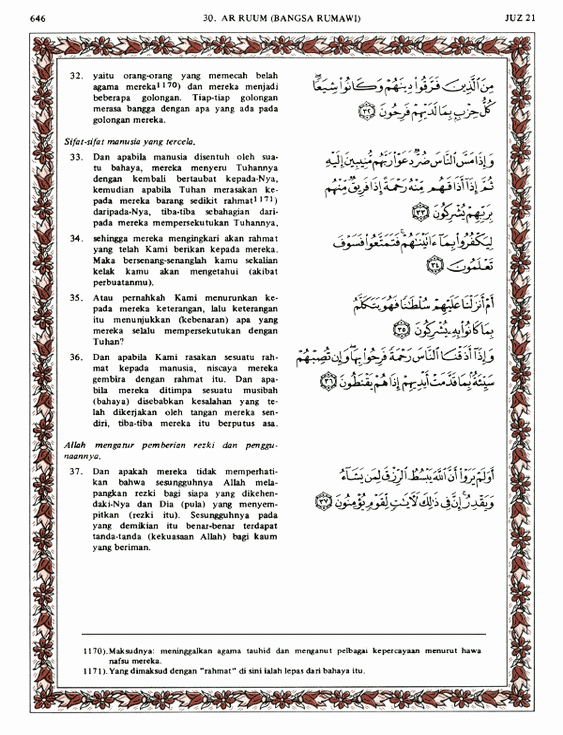 646
30. AR RUUM (BANGSA RUMAWI)
JUZ 21
32. yaitu orang-orang yang memecah belah
agama mereka¹¹⁷⁰) dan mereka menjadi
beberapa golongan. Tiap-tiap golongan
merasa bangga dengan apa yang ada pada
golongan mereka.
مِنَ ٱلَّذِينَ فَرَّقُوا۟ دِينَهُمْ وَكَانُوا۟ شِيَعًا ۖ
كُلُّ حِزْبٍۭ بِمَا لَدَيْهِمْ فَرِحُونَ ٣٢
Sifat-sifat manusia yang tercela.
33. Dan apabila manusia disentuh oleh sua-
tu bahaya, mereka menyeru Tuhannya
dengan kembali bertaubat kepada-Nya,
kemudian apabila Tuhan merasakan ke-
pada mereka barang sedikit rahmat¹¹⁷¹)
daripada-Nya, tiba-tiba sebahagian dari-
pada mereka mempersekutukan Tuhannya,
وَإِذَا مَسَّ ٱلنَّاسَ ضُرٌّ دَعَوْا۟ رَبَّهُم مُّنِيبِينَ إِلَيْهِ
ثُمَّ إِذَآ أَذَاقَهُم مِّنْهُ رَحْمَةً إِذَا فَرِيقٌ مِّنْهُم
بِرَبِّهِمْ يُشْرِكُونَ ٣٣
34. sehingga mereka mengingkari akan rahmat
yang telah Kami berikan kepada mereka.
Maka bersenang-senanglah kamu sekalian
kelak kamu akan mengetahui (akibat
perbuatanmu).
لِيَكْفُرُوا۟ بِمَآ ءَاتَيْنَٰهُمْ ۚ فَتَمَتَّعُوا۟ فَسَوْفَ
تَعْلَمُونَ ٣٤
35. Atau pernahkah Kami menurunkan ke-
pada mereka keterangan, lalu keterangan
itu menunjukkan (kebenaran) apa yang
mereka selalu mempersekutukan dengan
Tuhan?
أَمْ أَنزَلْنَا عَلَيْهِمْ سُلْطَٰنًا فَهُوَ يَتَكَلَّمُ
بِمَا كَانُوا۟ بِهِۦ يُشْرِكُونَ ٣٥
36. Dan apabila Kami rasakan sesuatu rah-
mat kepada manusia, niscaya mereka
gembira dengan rahmat itu. Dan apa-
bila mereka ditimpa sesuatu musibah
(bahaya) disebabkan kesalahan yang te-
lah dikerjakan oleh tangan mereka sen-
diri, tiba-tiba mereka itu berputus asa.
وَإِذَآ أَذَقْنَا ٱلنَّاسَ رَحْمَةً فَرِحُوا۟ بِهَا ۖ وَإِن تُصِبْهُمْ
سَيِّئَةٌۢ بِمَا قَدَّمَتْ أَيْدِيهِمْ إِذَا هُمْ يَقْنَطُونَ ٣٦
Allah mengatur pemberian rezki dan penggu-
naannya.
37. Dan apakah mereka tidak memperhati-
kan bahwa sesungguhnya Allah mela-
pangkan rezki bagi siapa yang dikehen-
daki-Nya dan Dia (pula) yang menyem-
pitkan (rezki itu). Sesungguhnya pada
yang demikian itu benar-benar terdapat
tanda-tanda (kekuasaan Allah) bagi kaum
yang beriman.
أَوَلَمْ يَرَوْا۟ أَنَّ ٱللَّهَ يَبْسُطُ ٱلرِّزْقَ لِمَن يَشَآءُ
وَيَقْدِرُ ۚ إِنَّ فِى ذَٰلِكَ لَءَايَٰتٍ لِّقَوْمٍ يُؤْمِنُونَ ٣٧
1170). Maksudnya: meninggalkan agama tauhid dan menganut pelbagai kepercayaan menurut hawa
nafsu mereka.
1171). Yang dimaksud dengan "rahmat" di sini ialah lepas dari bahaya itu.